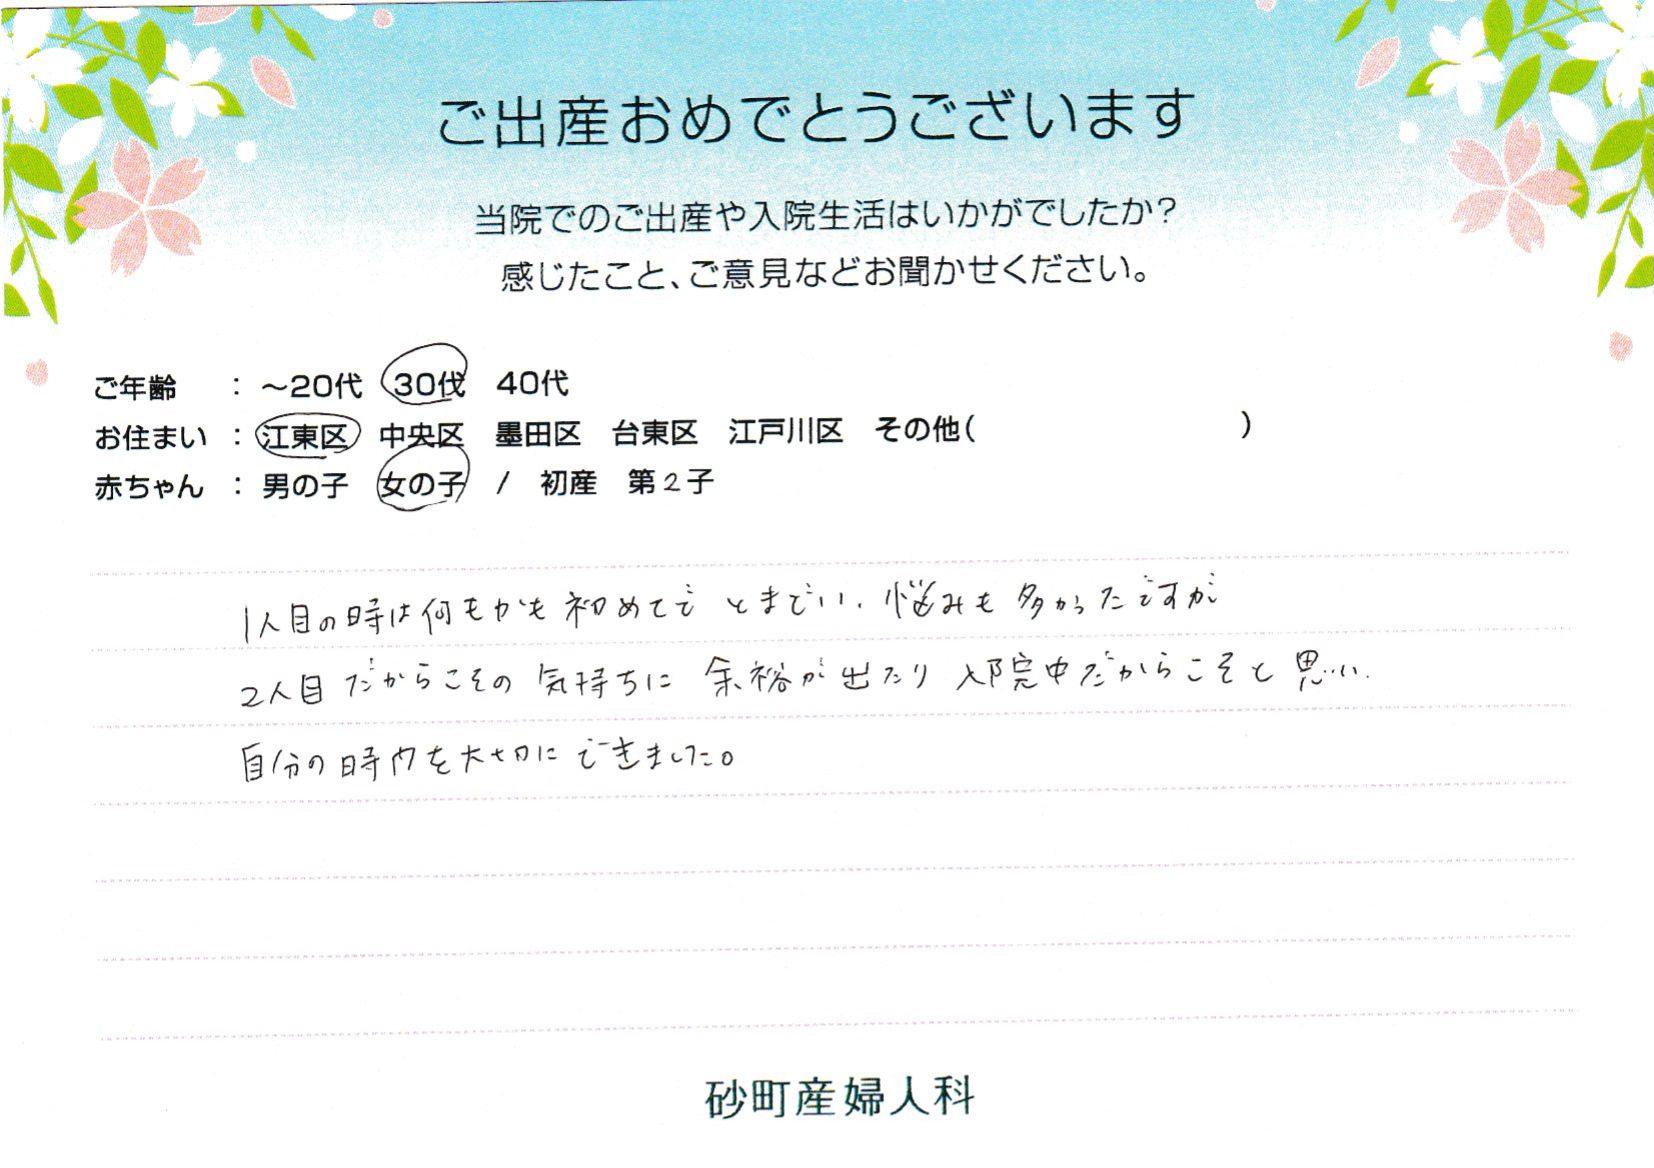 ご出産おめでとうございます
当院でのご出産や入院生活はいかがでしたか？
感じたこと、ご意見などお聞かせください。
ご年齢　：　～20代　30代　40代
お住まい　：　江東区　中央区　墨田区　台東区　江戸川区　その他（　　　　　　　　　）
赤ちゃん　：　男の子　女の子　/　初産　第2子
1人目の時は何もかも初めてで とまどい、悩みも 多かったですが
2人目 だからこその 気持ちに 余裕が 出たり 入院中だからこそと 思い、
自分の時間を大切に できました。
砂町産婦人科